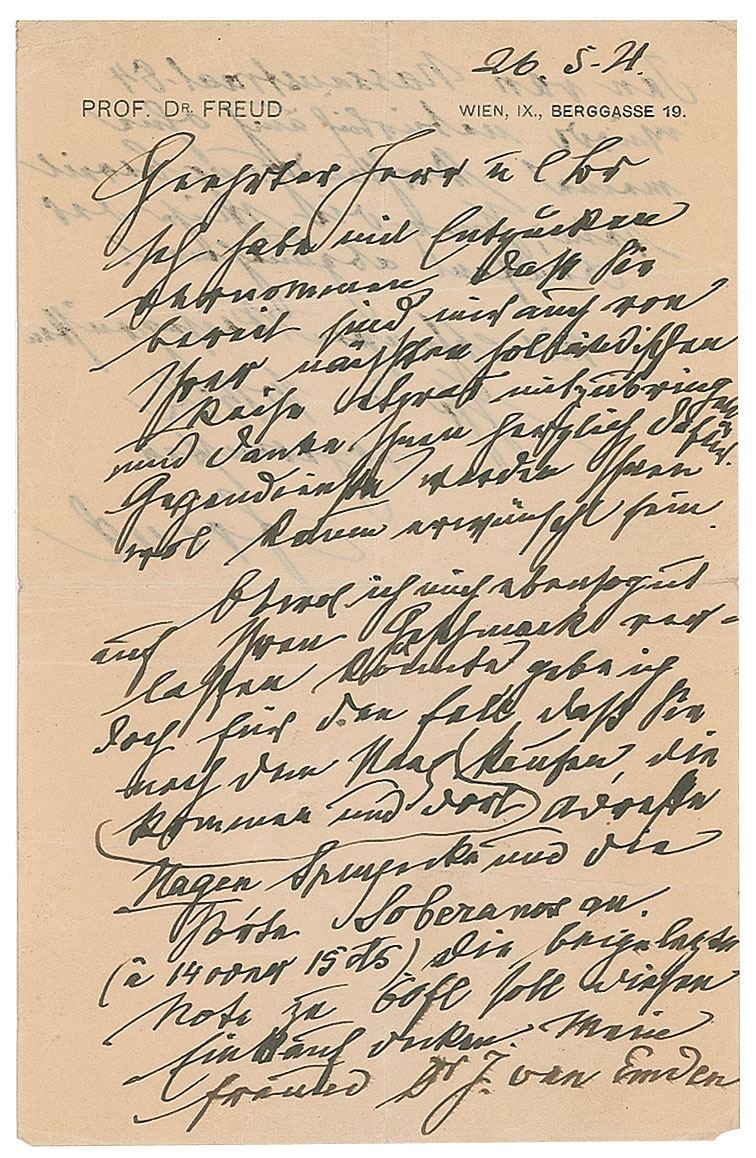 26. 5. 21.
PROF. DR. FREUD WIEN, IX., BERGGASSE 19.
Geehrter Herr
Ich habe mit Entzücken
vernommen daß Sie
bereit sind mir auch von
Ihrer nächsten holländischen
Reise etwas mitzubringen
und danke Ihnen herzlich dafür.
Gegendienste werden Ihnen
wol kaum erwünscht sein.
Obwol ich mich ebensogut
auf Ihren Geschmack ver-
lassen könnte gebe ich
doch für den Fall, daß Sie
nach dem Haag
kommen und dort kaufen, die Adresse
Hagen und die
Sorte Soberanos an.
(à 14 oder 15 cts) die beigelegte
Note zu 60 fl soll diesen
Einkauf decken. Mein
Freund Dr J. van Emden